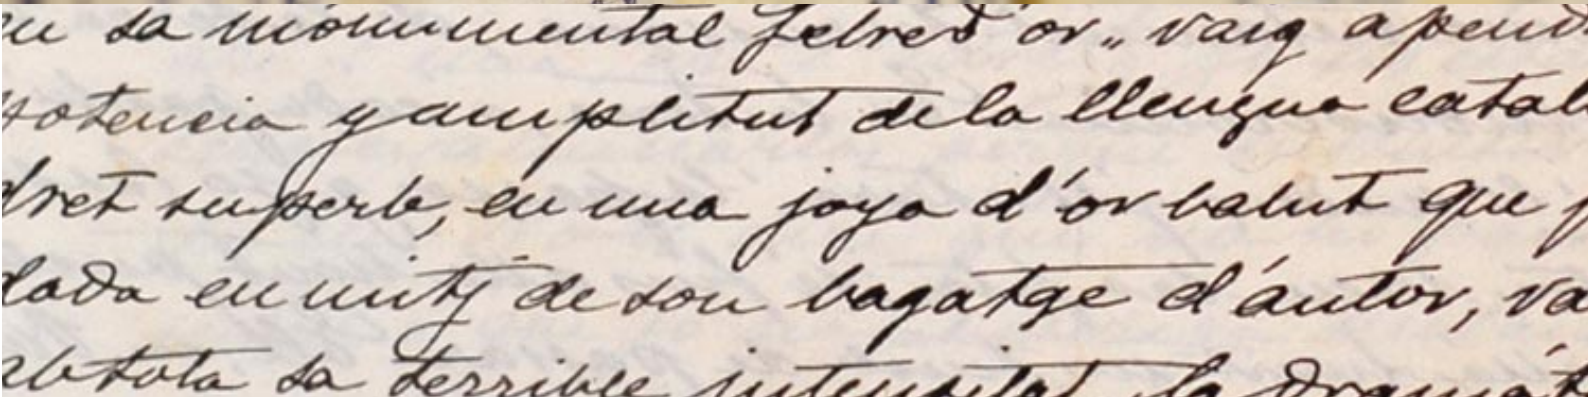 en sa monumental Febre d'or„ vaig apend
potencia y amplitut de la llengua catal
dret superb, en una joya d'or batut que p
dada en mitj de son bagatge d'áutor, va
ab tota sa terrible intensitat la dramát